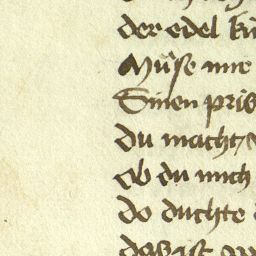 der edel kü
Müſe mir
Sinen pris
du macht
ob du mich
do duchte
das iſt